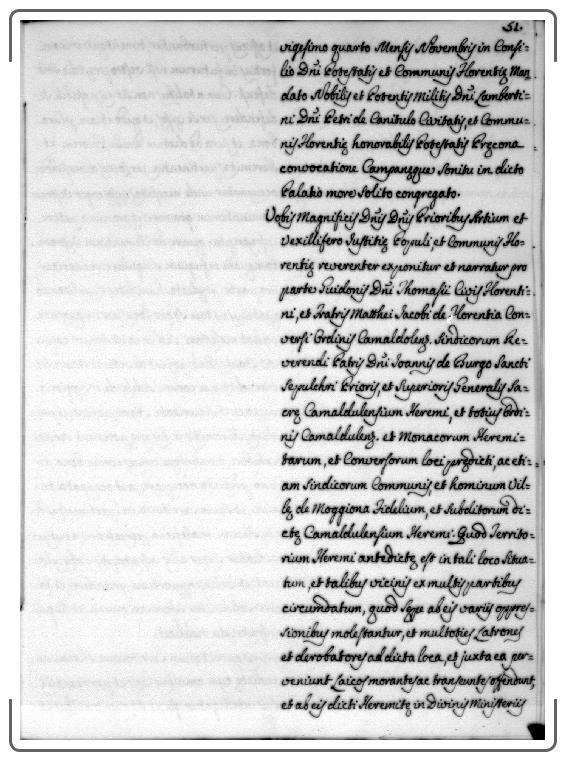 51.
vigesimo quarto Mensis Novembris in Consi-
lio Dñi Potestatis et Communis Florentię Man
dato Nobilis et Potentis Militis Dñi Lamberti-
ni Dñi Petri de Canitulo Civitatis, et Commu-
nis Florentię honorabilis Potestatis Pręcona
convocatione Campanęque Sonitu in dicto
Palatio more solito congregato.
Vobis Magnificis Dñis Dñis Prioribus Artium et
Vexillifero Justitię Populi, et Communis Flo-
rentię reverenter exponitur et narratur pro
parte Guidonis Dñi Thomasii Civis Florenti-
ni, et Fratris Matthei Jacobi de Florentia Con-
versi Ordinis Camaldolenṣ. Sindicorum Re-
verendi Patris Dñi Joannis de Burgo Sancti
Sepulchri Prioris, et Superioris Generalis Sa-
crę Camaldulensium Heremi, et totius Ordi-
nis Camaldulenṣ. et Monacorum Heremi-
tarum, et Conversorum loci prędicti, ac eti-
am Sindicorum Communis, et hominum Vil-
lę de Moggiona Fidelium, et Subditorum di-
ctę Camaldulensium Heremi. Quod Territo-
rium Heremi antedictę est in tali loco Situa-
tum, et talibus vicinis ex multis partibus
circumdatum, quod sępe ab eis variis oppres-
sionibus molestantur, et multoties Latrones
et derobatores ad dicta loca, et juxta ea per-
veniunt Laicos morantes ac transeuntes offendunt,
et ab eis dicti Heremitę in Divinis Ministeriis